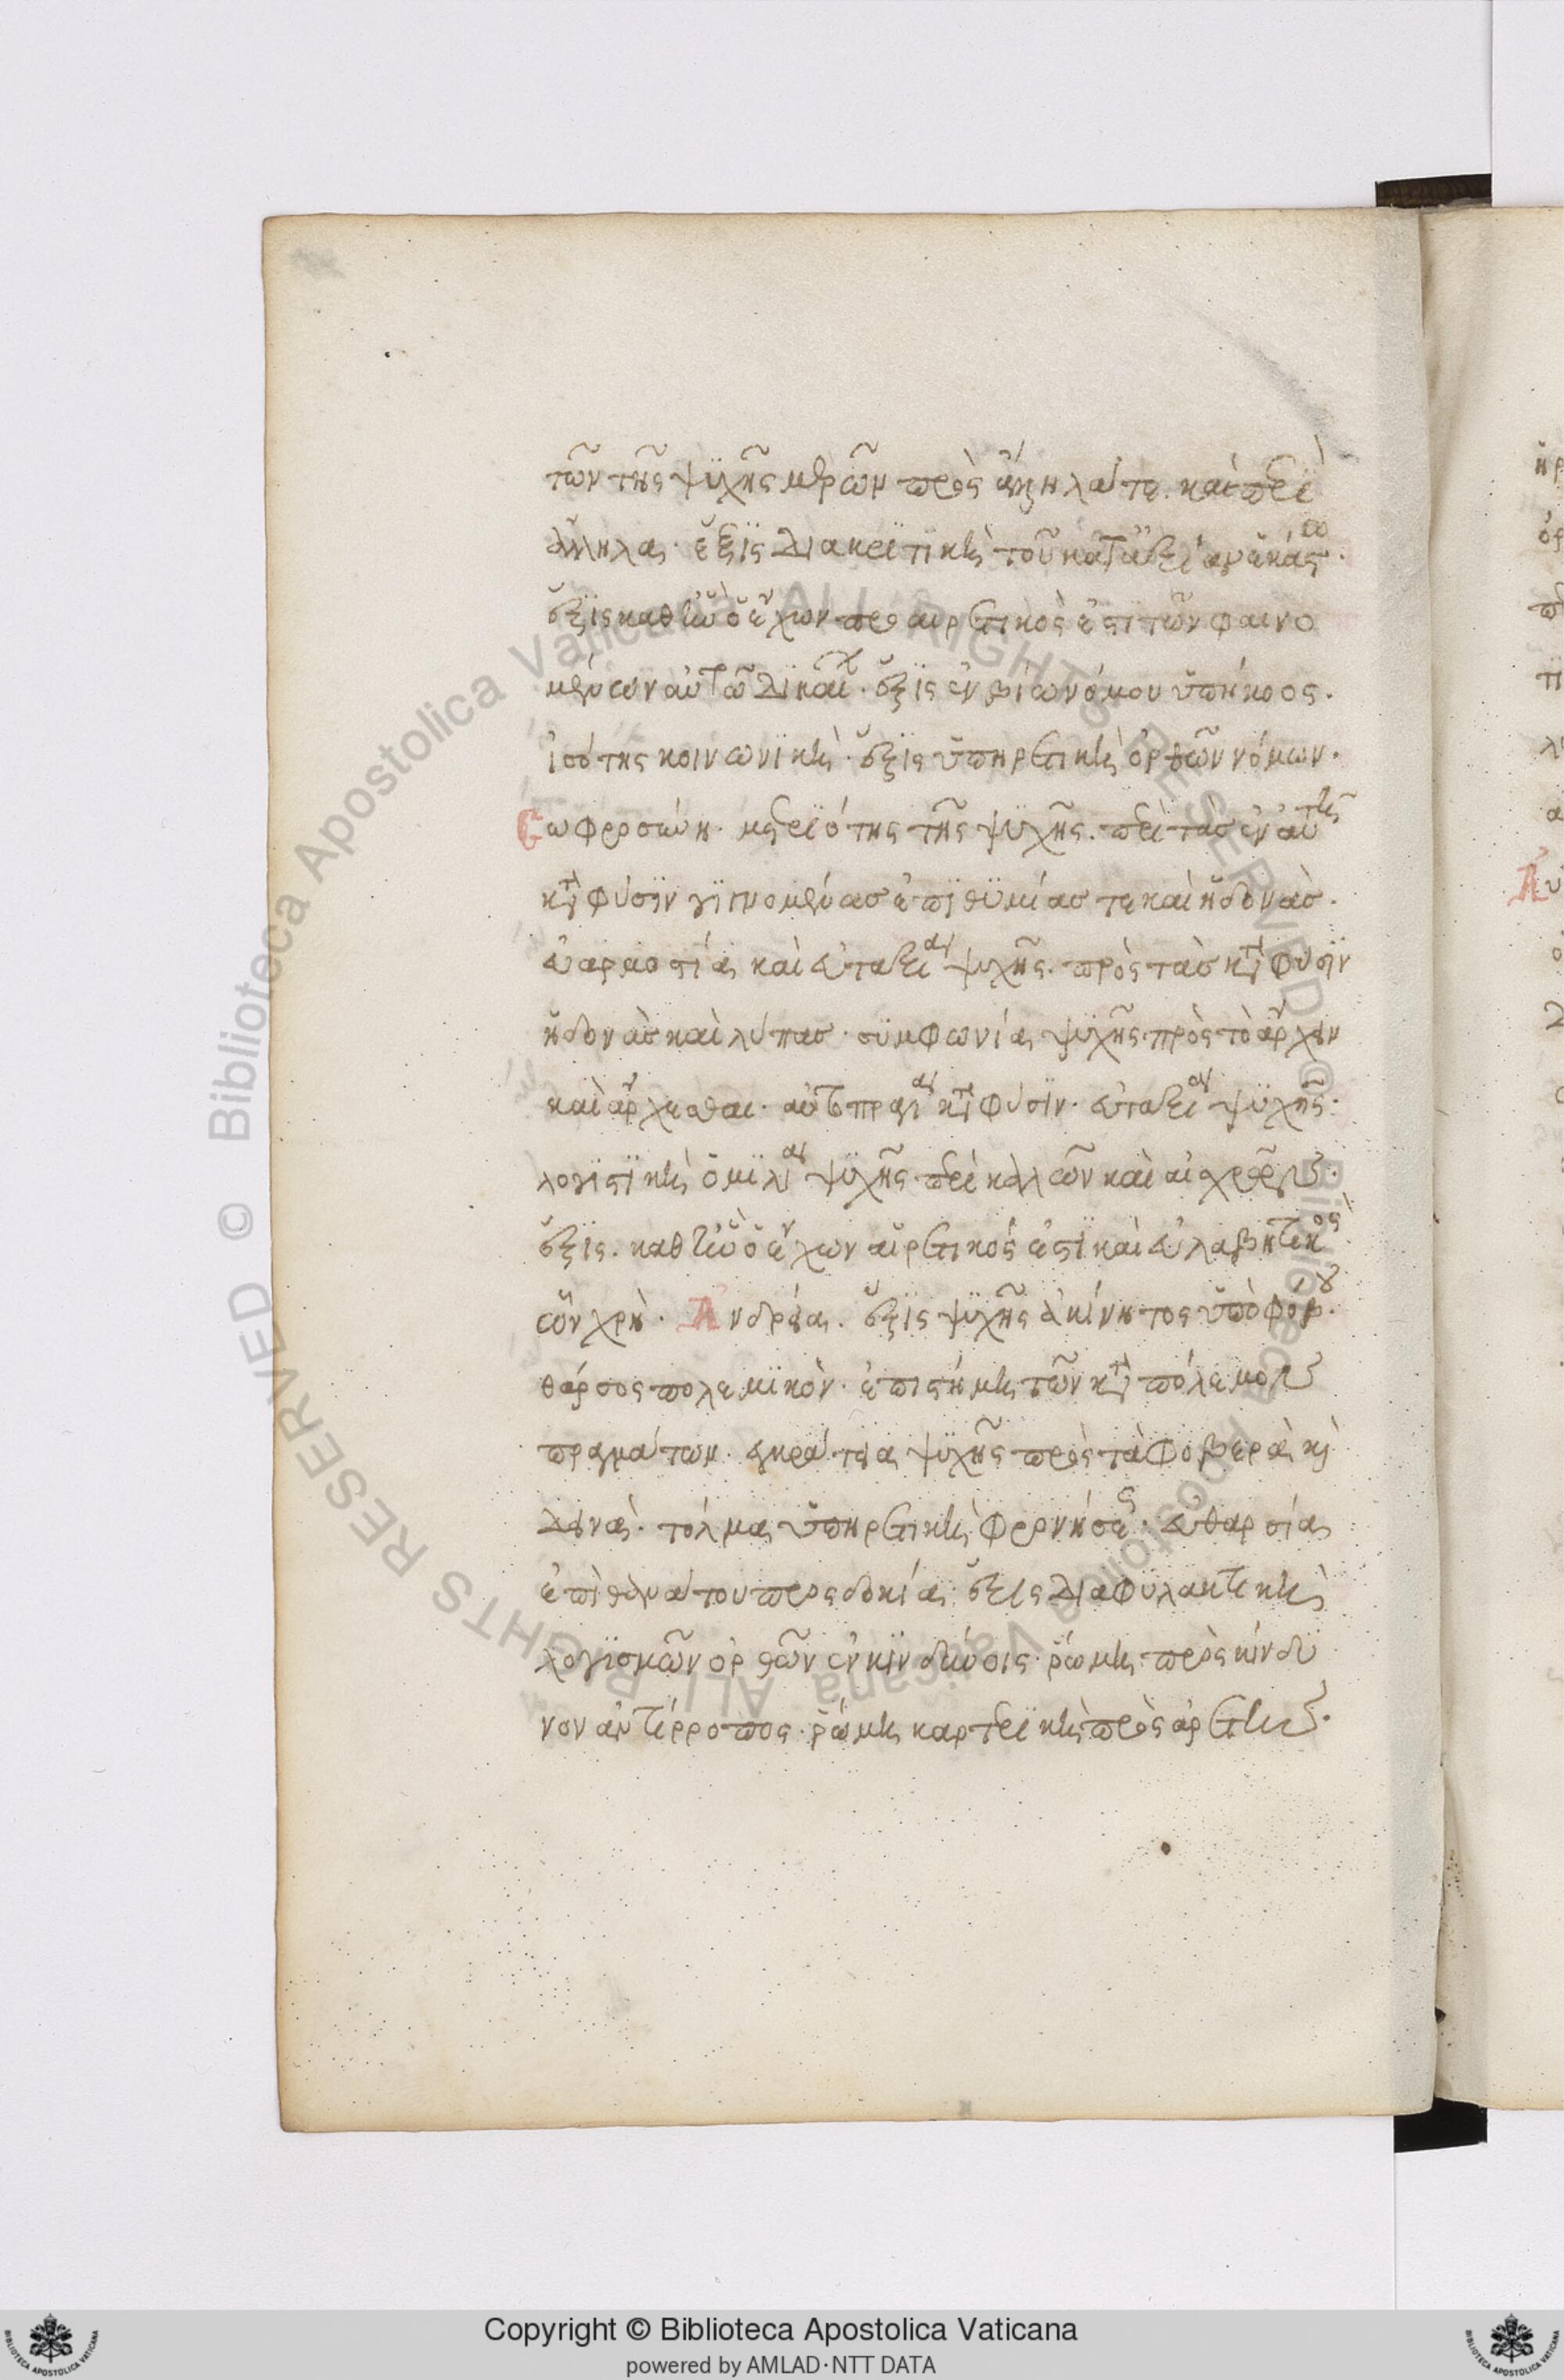 τῶν τῆς ψϋχῆς μερῶν πρὸς ἄλληλά τε. καὶ περὶ
ἄλληλα· ἕξϊς διακρϊτϊκὴ τοῦ κατ' ἀξίαν ἑκάστω·
ἕξϊς καθ' ἣν ὁ ἔχων προαιρετικὸς ἐστὶ τῶν φαινο
μένων αὐτῶ δϊκαί· ἕξϊς ἐν βίω νόμου ὑπήκοος.
ἰσότης κοινωνϊκὴ· ἕξϊς ὑπηρετικὴ ὀρθῶν νόμων·
Σωφροσύνη· μετρϊότης τῆς ψϋχῆς. περὶ τὰς ἐν αὐτῆ
κατὰ φύσϊν γϊγνομένας ἐπϊθϋμίας τε καὶ ἡδονὰς.
εὐαρμοστία καὶ εὐταξία ψυχῆς. πρὸς τὰς κατὰ φύσϊν
ἡδονὰς καὶ λύπας· σϋμφωνία ψϋχῆς πρὸς τὸ ἄρχειν
καὶ ἄρχεσθαι· αὐτοπραγία κατὰ φύσϊν· εὐταξία ψϋχῆς·
λογϊστϊκὴ ὁμϊλία ψϋχῆς περὶ καλῶν καὶ αἰσχρῶν·
ἕξϊς. καθ' ἣν ὁ ἔχων αἱρετικός ἐστϊ καὶ εὐλαβητικὸς
ὧν χρὴ· Ἀνδρεία. ἕξϊς ψϋχῆς ἀκίνητος ὑπὸ φόβου·
θάρσος πολεμϊκὸν· ἐπιστήμη τῶν κατὰ πόλεμον
πραγμάτων· ἐγκράτεια ψϋχῆς πρὸς τὰ φοβερὰ καὶ
δεινὰ· τόλμα ὑπηρετικὴ φρονήσεως· εὐθαρσία
ἐπὶ θανάτου προσδοκία· ἕξις διαφϋλακτικὴ
λογϊσμῶν ὀρθῶν ἐν κϊνδύνοις· ῥώμη πρὸς κίνδϋ
νον ἀντίρροπος· ῥώμη καρτερϊκὴ πρὸς ἀρετὴν·
Copyright © Biblioteca Apostolica Vaticana
powered by AMLAD·NTT DATA